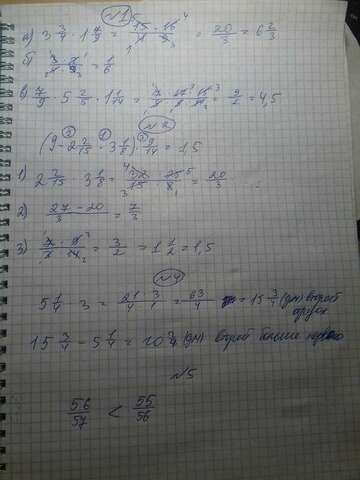 №1
а) 3 3/4 · 1 7/9 = 15 · 16 / 4 · 9 = 20/3 = 6 2/3
б) 3 · 4 / 2 · 9 = 1/6
в) 7/9 · 5 2/5 · 1 1/14 = 7 · 27 · 15 / 9 · 5 · 14 = 9/2 = 4,5
№2
(9 - 2 2/15 · 3 1/8) · 9/14 = 1,5
1) 2 2/15 · 3 1/8 = 32 · 25 / 15 · 8 = 20/3
2) 27 - 20 / 3 = 7/3
3) 7 · 9 / 3 · 14 = 3/2 = 1 1/2 = 1,5
№4
5 1/4 · 3 = 21 · 3 / 4 · 1 = 63/4 = 15 3/4 (дм) второй
15 3/4 - 5 1/4 = 10 2/4 (дм) второй больше первого
№5
56/57 < 55/56